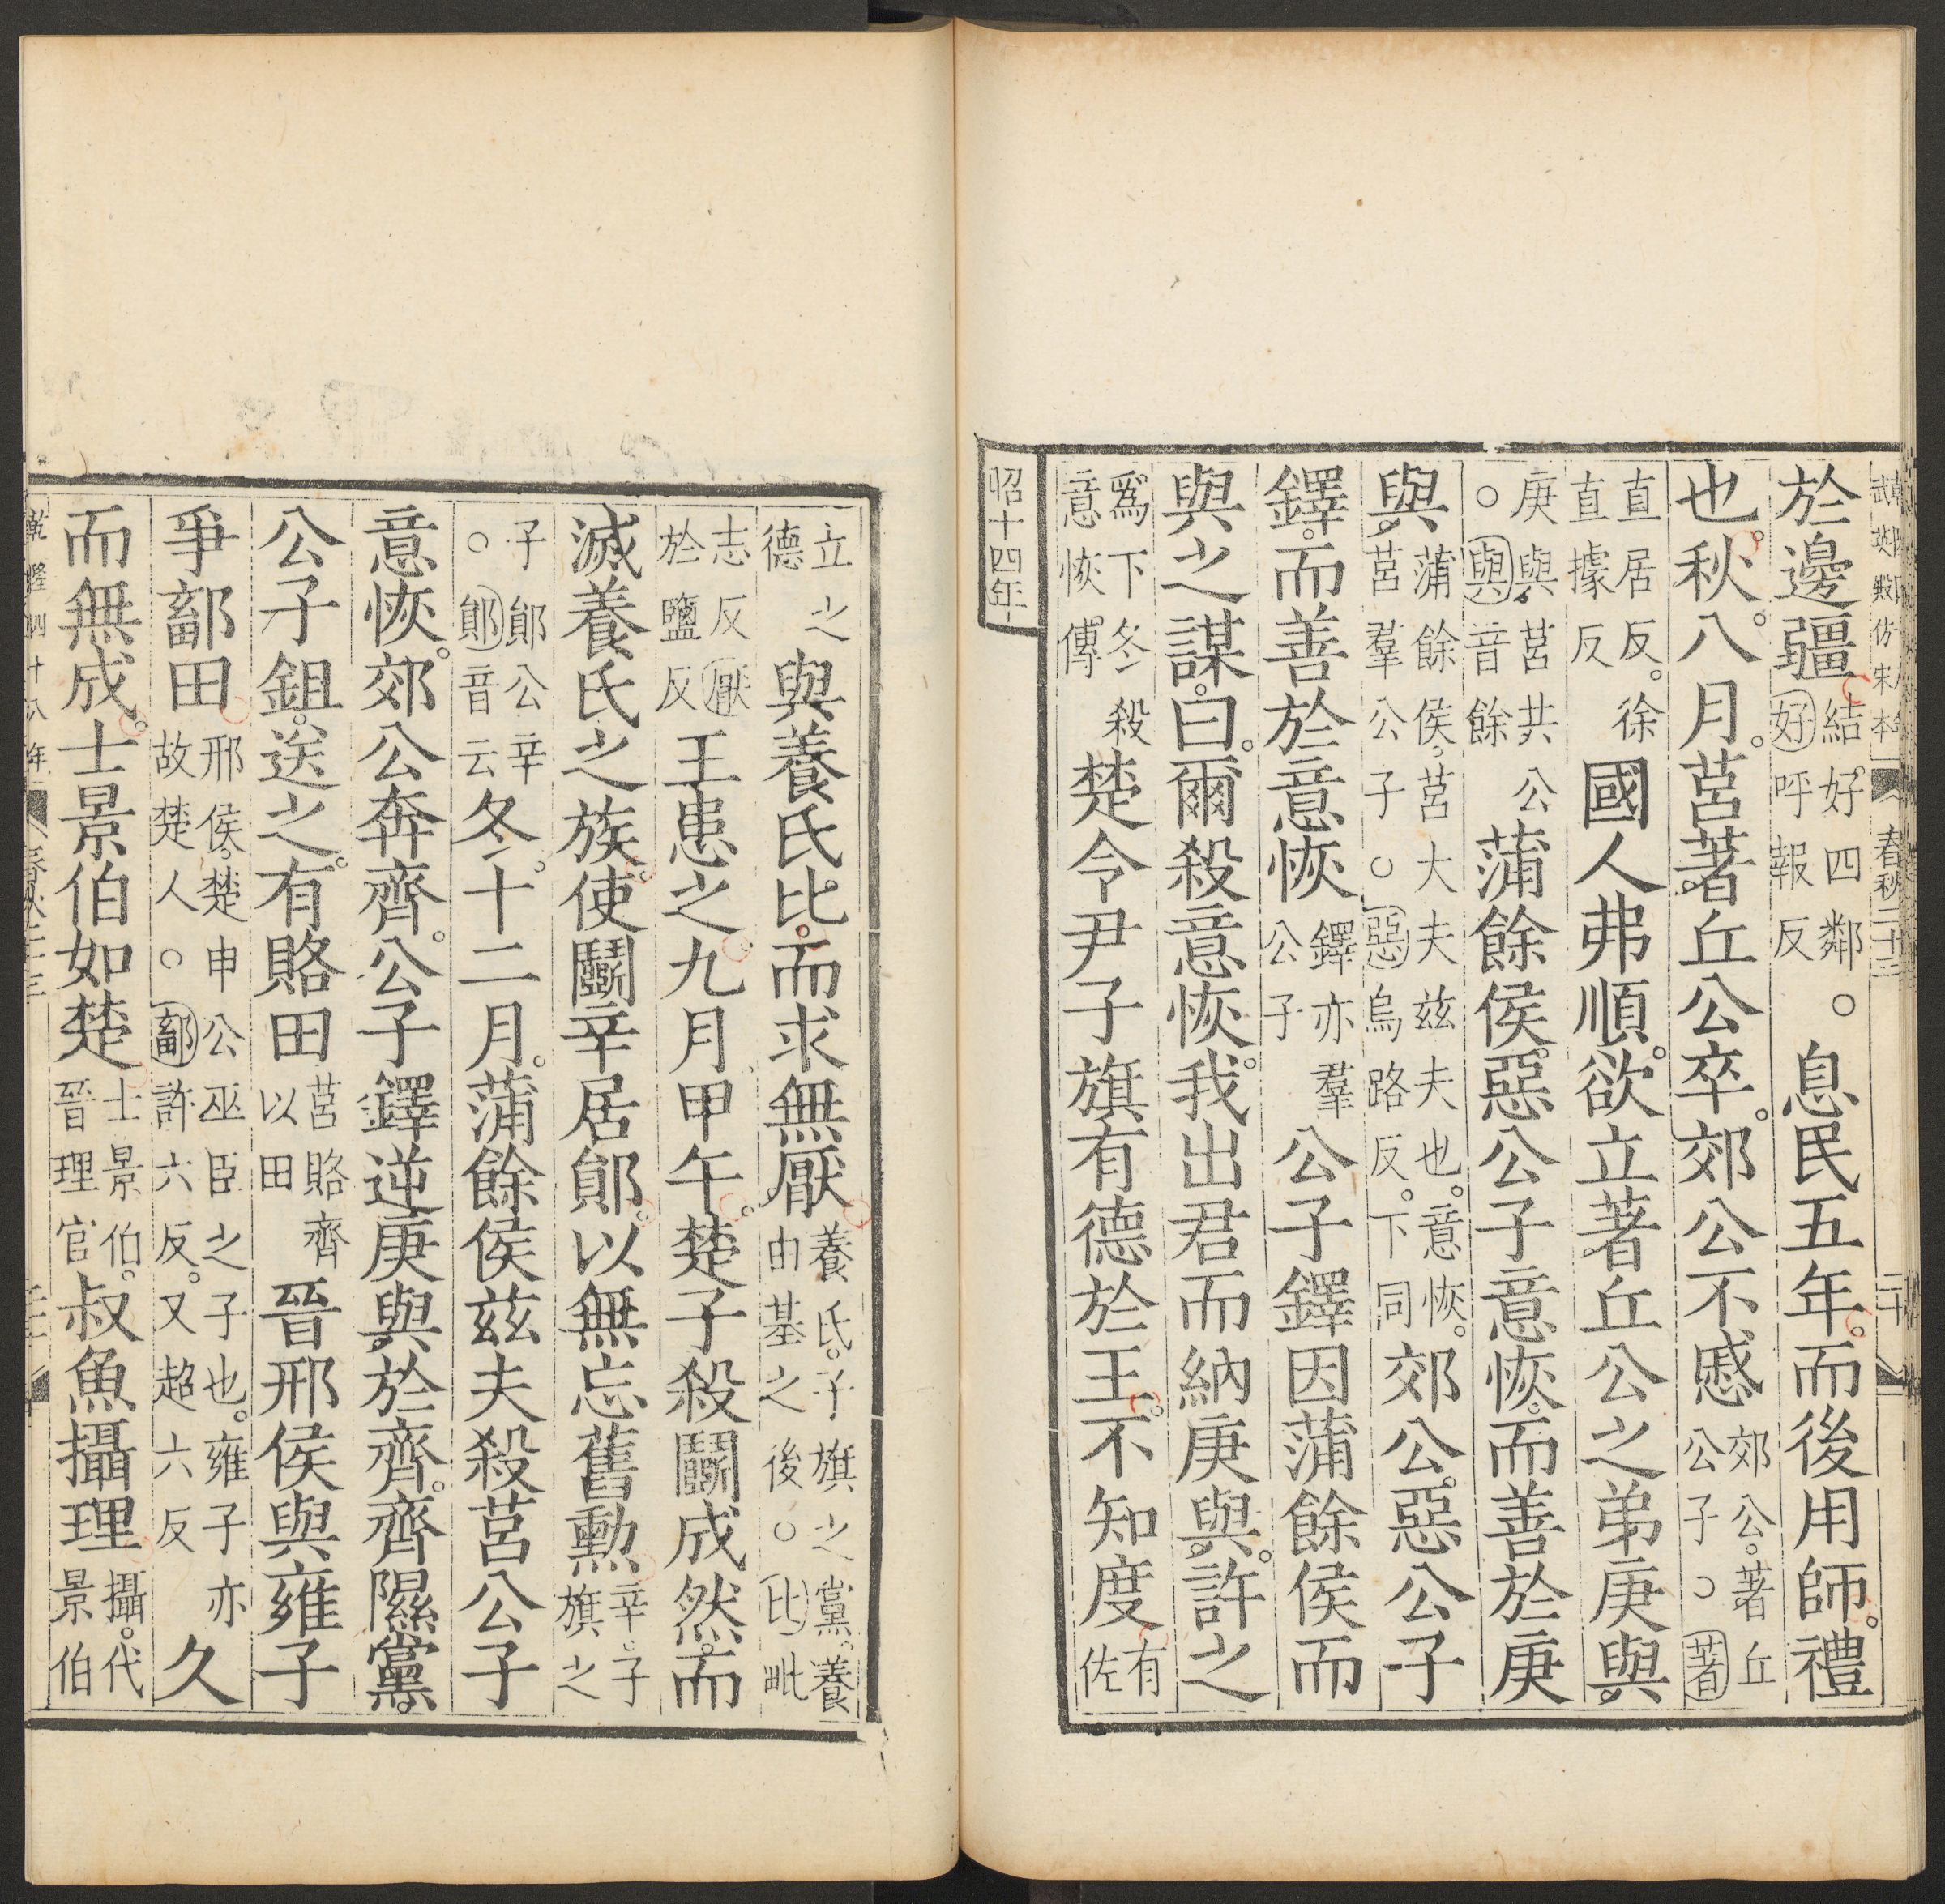 於邊疆結好四鄰。○好呼報反息民五年。而後用師。禮
也。秋。八月。莒著丘公卒。郊公不慼郊公。著丘公子○著
直居反。徐直據反國人弗順。欲立著丘公之弟庚與。
庚與。莒共公○與音餘蒲餘侯惡公子意恢。而善於庚
與。蒲餘侯。莒大夫兹夫也。意恢。莒羣公子○惡烏路反。下同郊公。惡公子
鐸。而善於意恢鐸亦羣公子公子鐸因蒲餘侯而
與之謀。曰。爾殺意恢。我出君而納庚與。許之
爲下冬殺意恢。傳楚令尹子旗有德於王。不知度有佐
昭十四年
立之德與養氏比。而求無厭。養氏。子旗之黨。養由基之後○比毗
志反厭於鹽反王患之九月甲午。楚子殺鬭成然。而
滅養氏之族。使鬭辛居鄖。以無忘舊勳辛。子旗之
子鄖公辛○鄖音云冬。十二月。蒲餘侯兹夫殺莒公子
意恢。郊公奔齊。公子鐸逆庚與於齊。齊隰黨。
公子鉏。送之。有賂田莒賂齊以田晉邢侯與雍子
爭鄐田邢侯。楚申公巫臣之子也。雍子亦故楚人○鄐許六反。又超六反久
而無成。士景伯如楚士景伯。晉理官叔魚攝理攝。代景伯